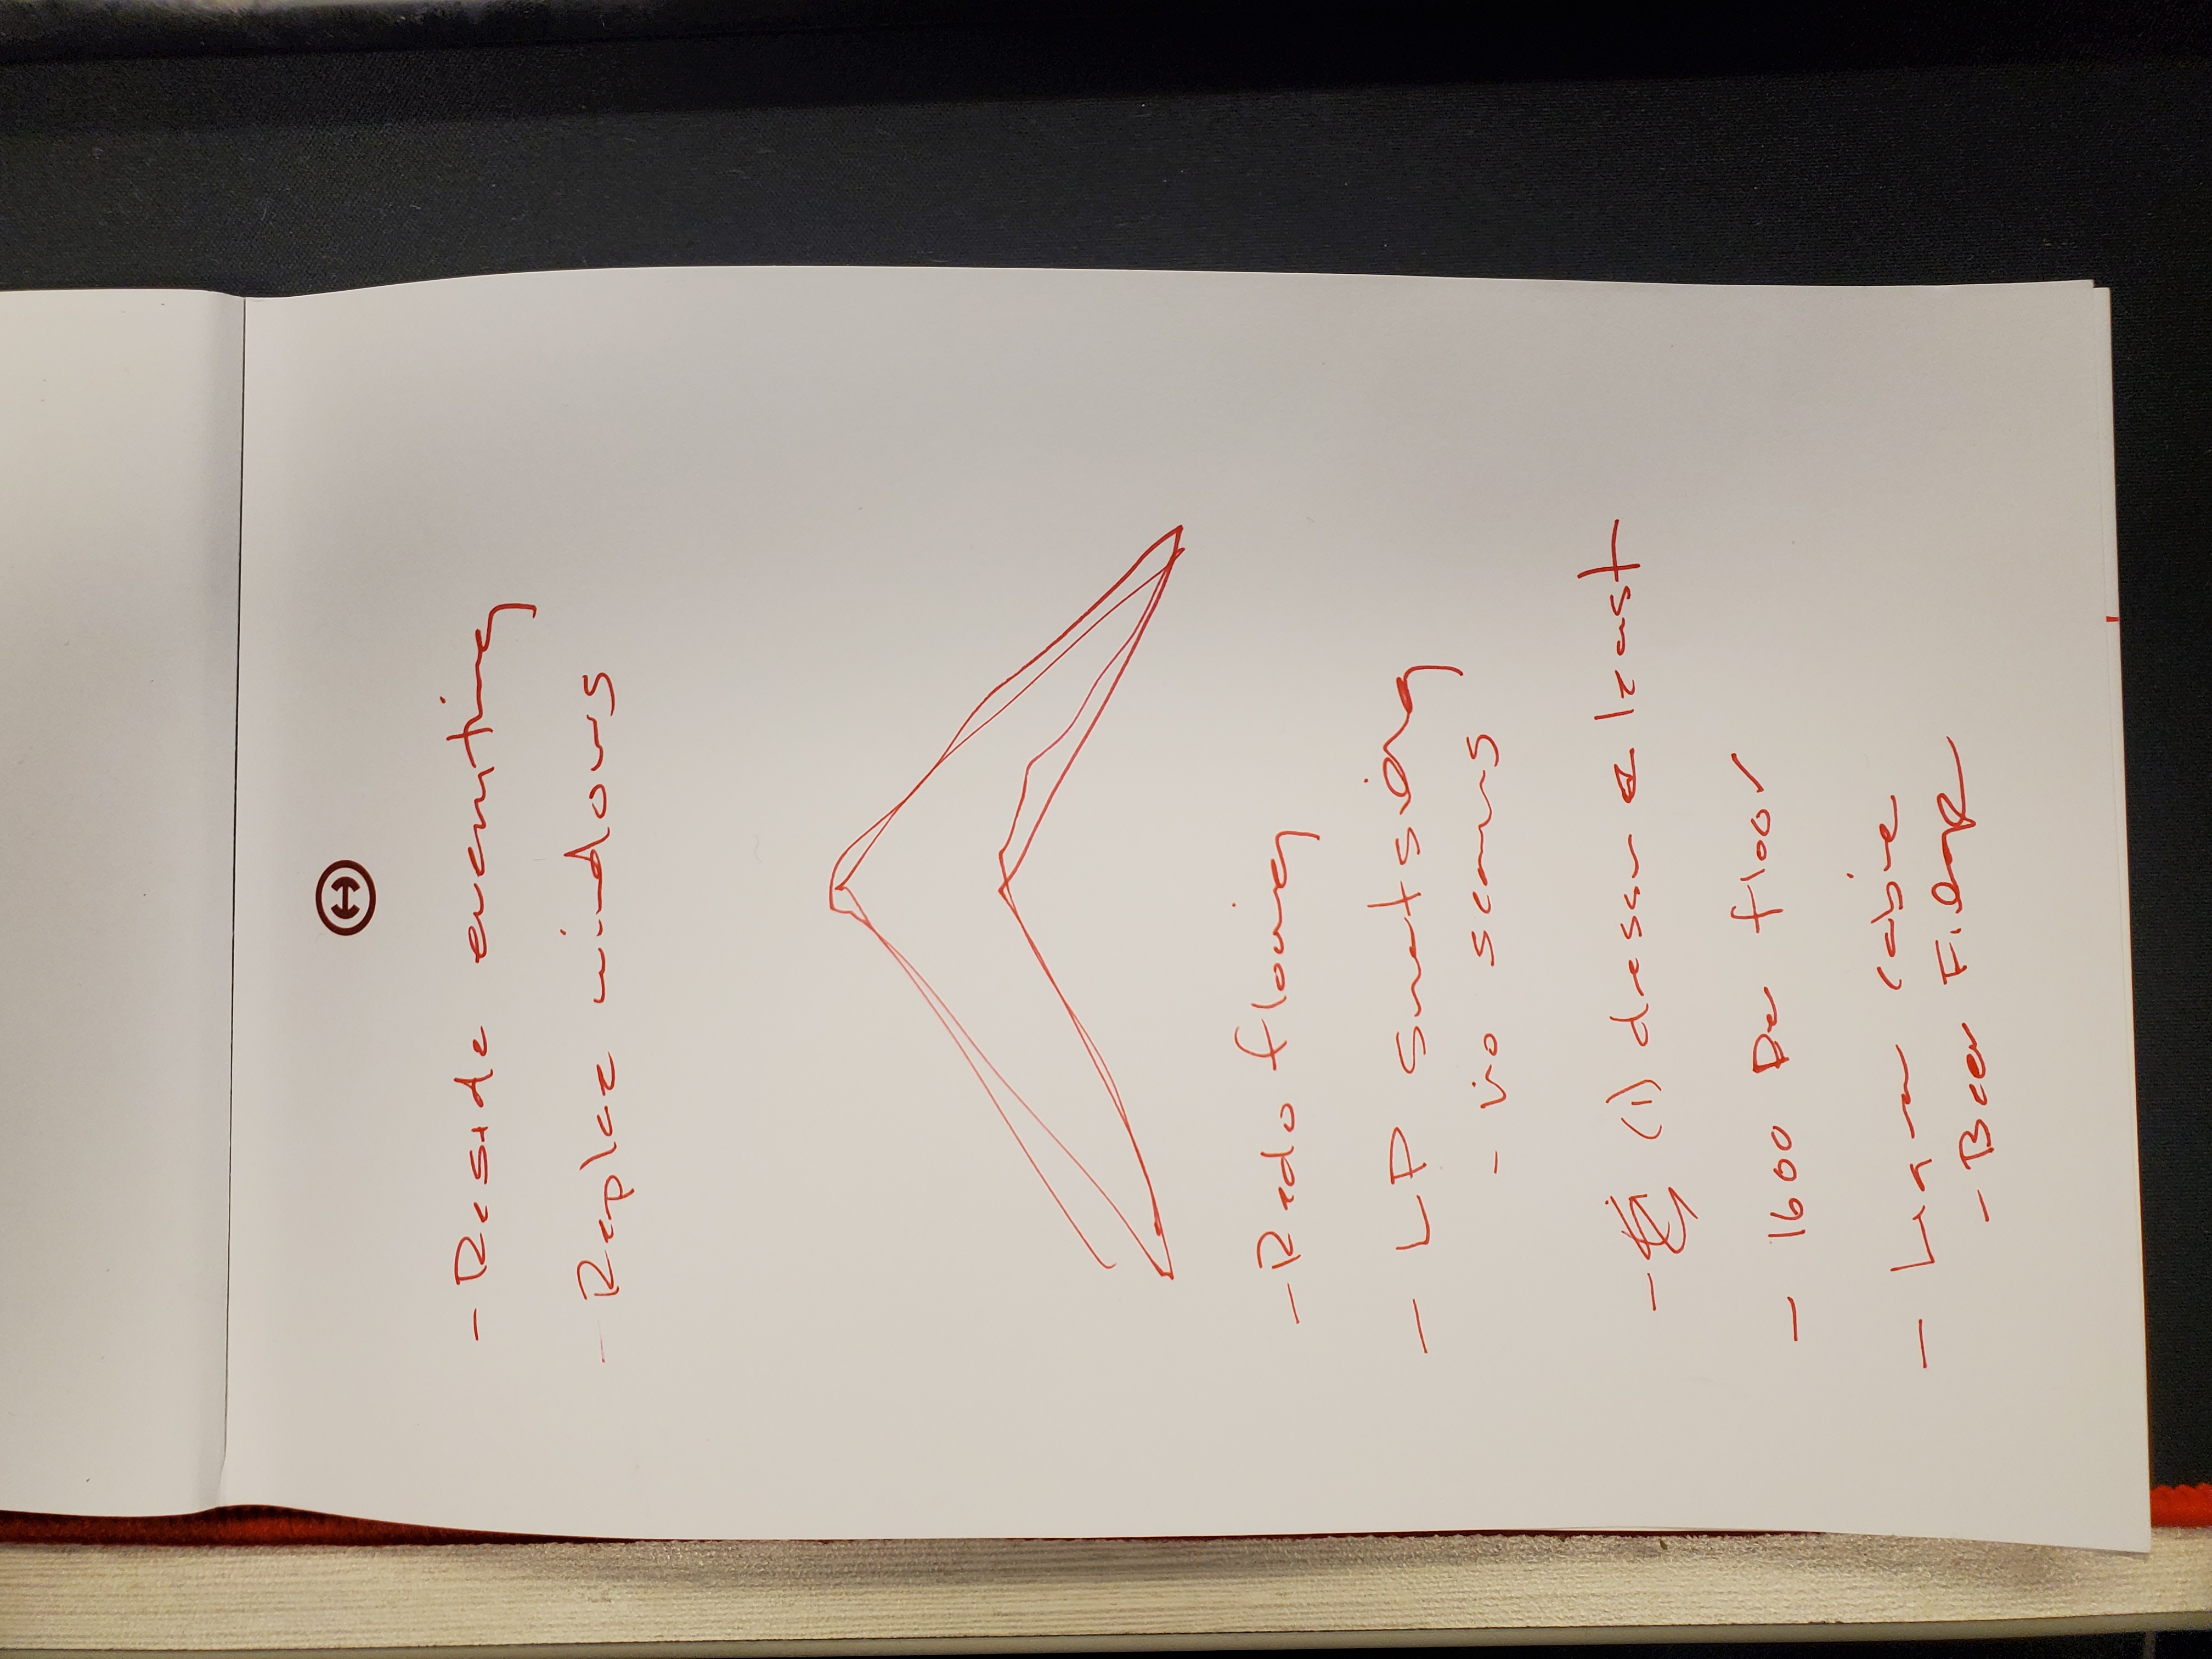 - Reside everything
- Replace windows
- Redo flooring
- LP smartsiding
- no seams
- (1) dresser @ least
- 1600 Per floor
- Liquor cabinet
- Beer Fridge